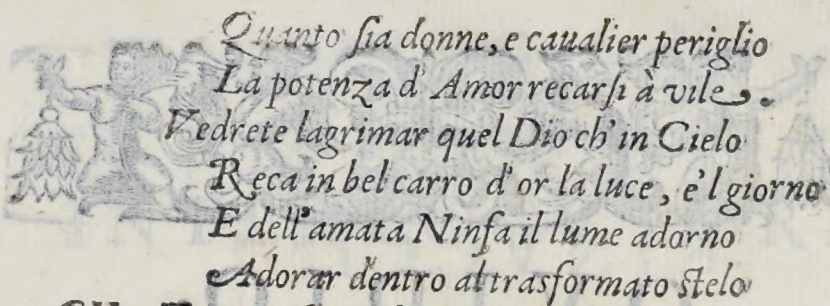 Quanto sia donne, e caualier periglio
La potenza d' Amor recarsi à vile.
Vedrete lagrimar quel Dio ch' in Cielo
Reca in bel carro d' or la luce, e'l giorno
E dell'amata Ninfa il lume adorno
Adorar dentro al trasformato stelo